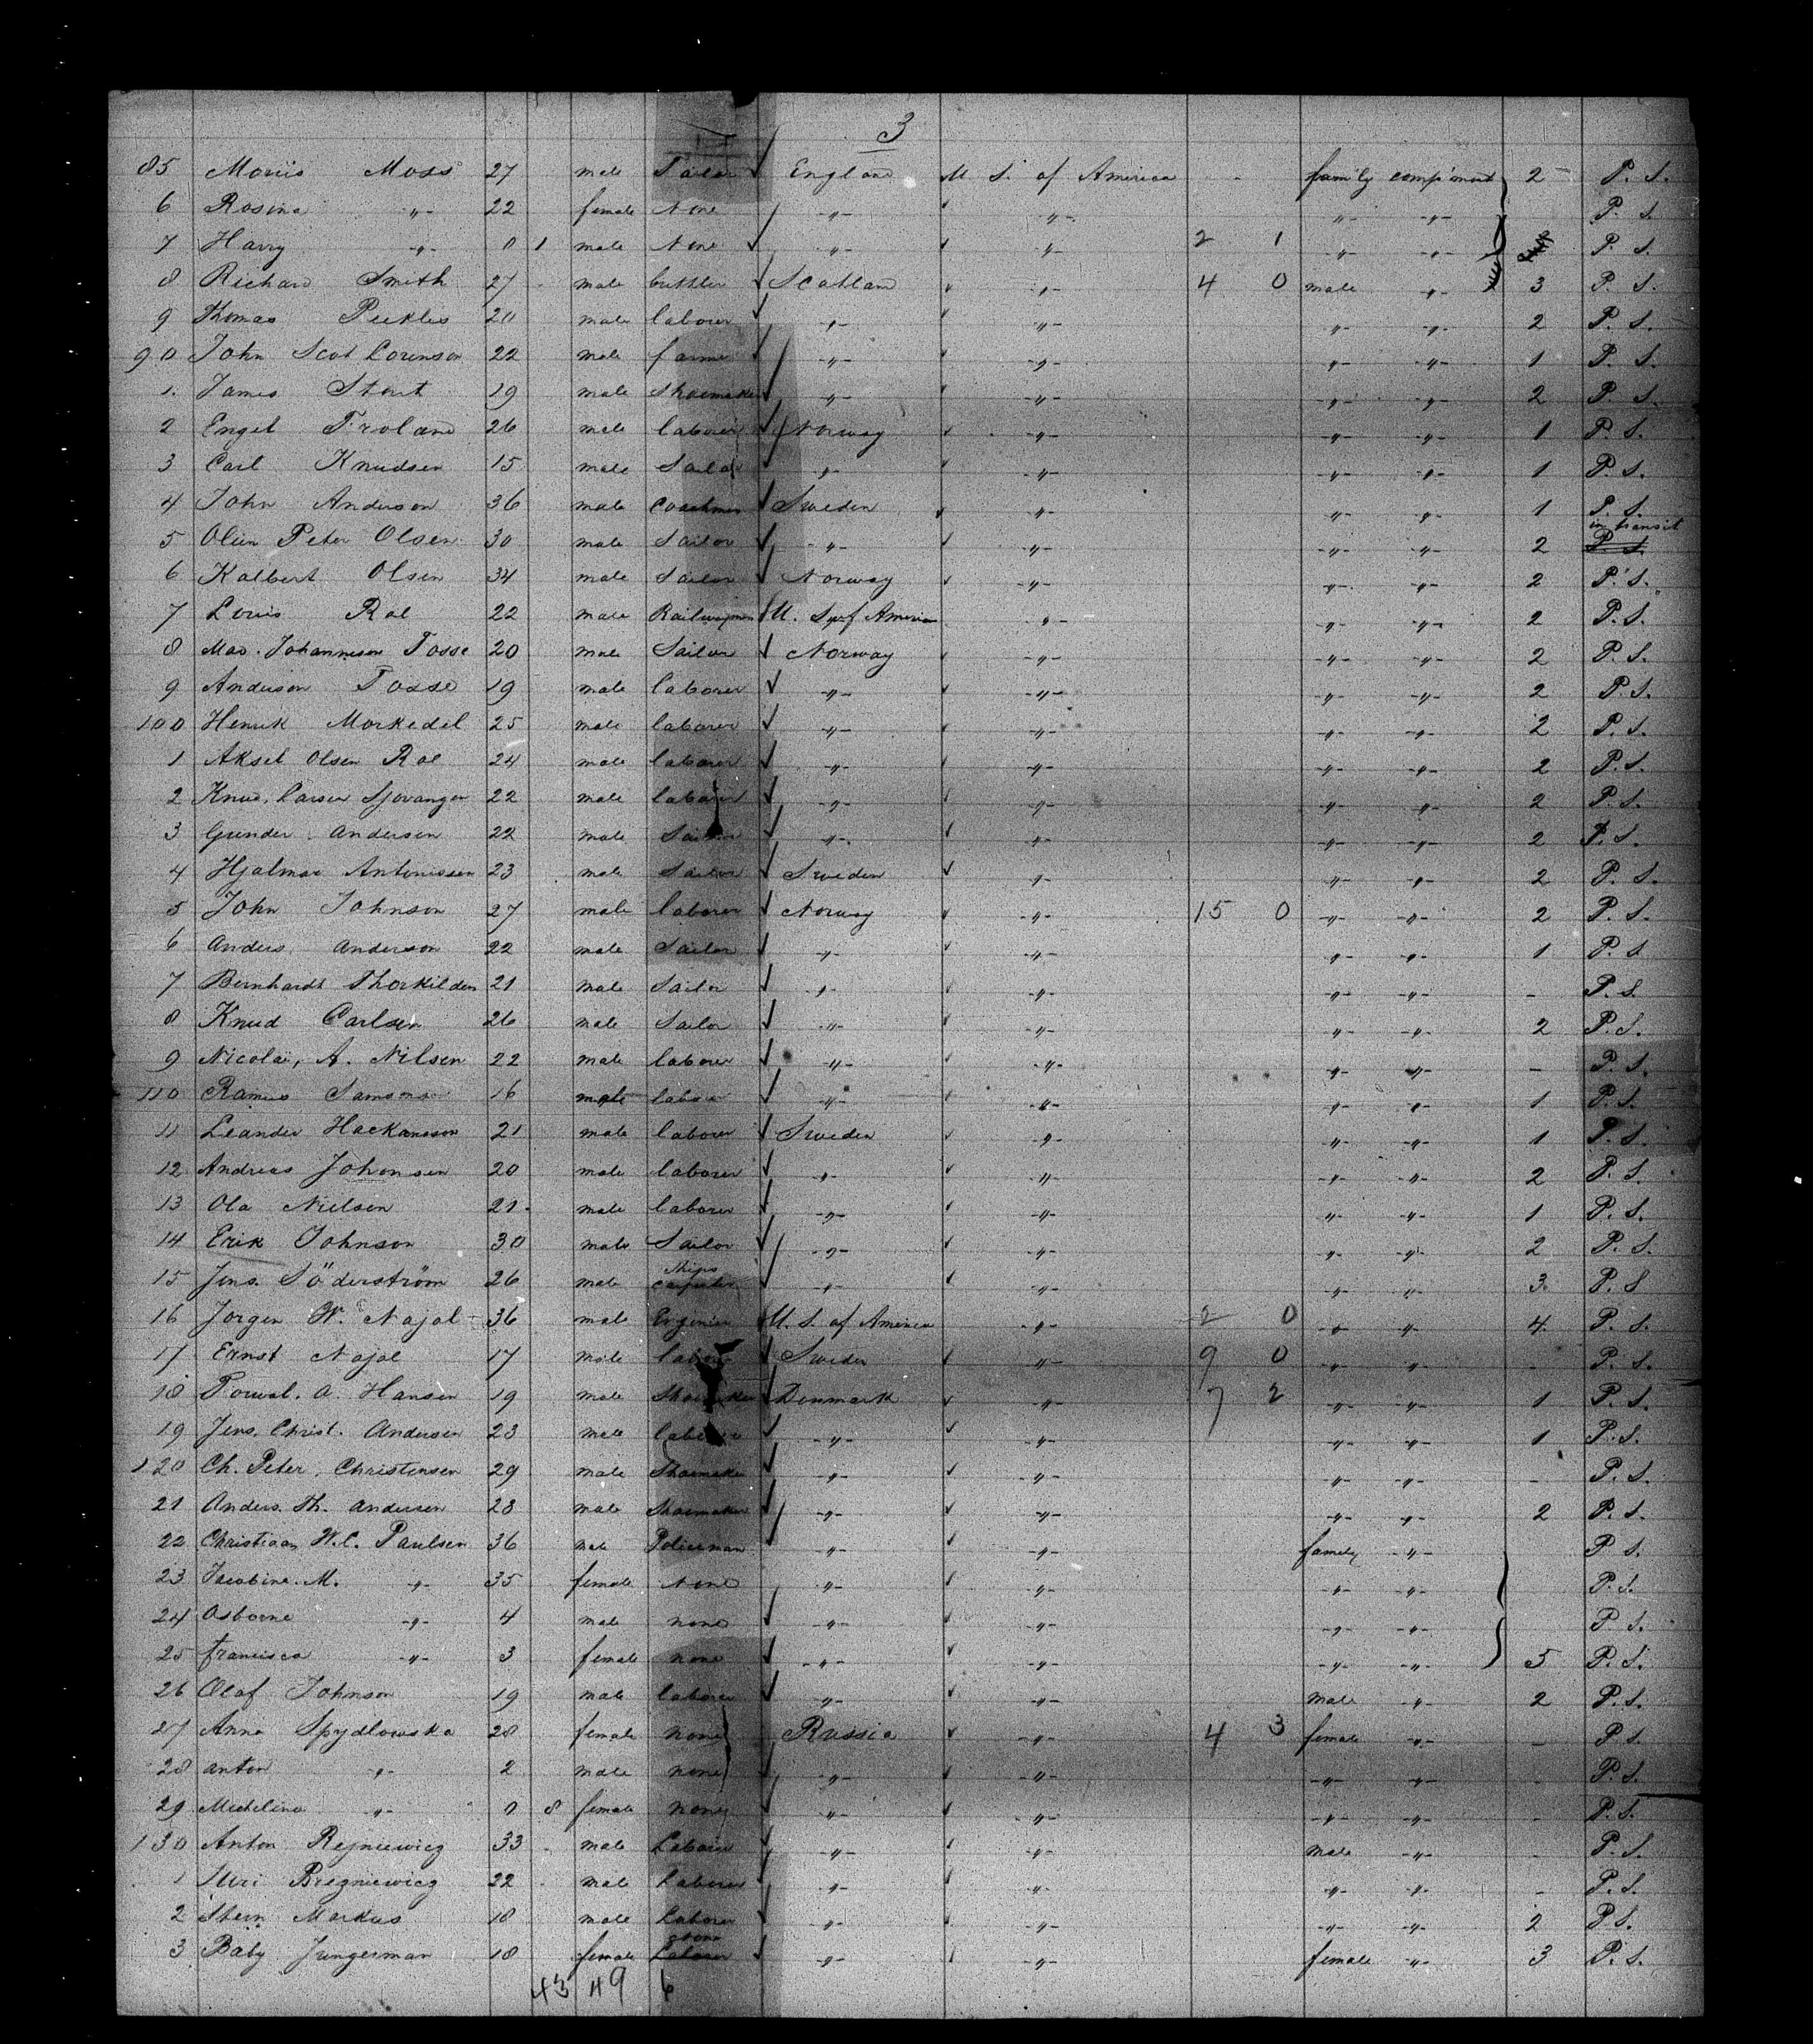 3
85 Morris Moss 27 male Tailor England U S. of America - family comp'ment 2 P. S.
6 Rosina -"- 22 female None -"- -"- -"- -"- P. S.
7 Harry -"- 0 1 male None -"- -"- 2 1 -"- -"- P. S.
8 Richard Smith 27 male Scotland -"- 4 0 male -"- 3 P. S.
9 Thomas Peebles 20 male laborer -"- -"- -"- -"- 2 P. S.
90 John Scot Lorenson 22 male farmer -"- -"- -"- -"- 1 P. S.
1. James Stout 19 male Shoemaker -"- -"- -"- -"- 2 P. S.
2 Engel Froland 26 male laborer Norway -"- -"- -"- 1 P. S.
3 Carl Knudsen 15 male Sailor -"- -"- -"- -"- 1 P. S.
4 John Anderson 36 male Coachman Sweden -"- -"- -"- 1 P. S.
in transit
5 Peter Olsen 30 male Sailor -"- -"- -"- -"- 2 P. S.
6 Kalbert Olsen 34 male Sailor Norway -"- -"- -"- 2 P. S.
7 Louis Roe 22 male Railwayman U. S. of America -"- -"- -"- 2 P. S.
8 Johannesen Tosse 20 male Sailor Norway -"- -"- -"- 2 P. S.
9 Anderson Tosse 19 male laborer -"- -"- -"- -"- 2 P. S.
100 Henrik Morkedel 25 male laborer -"- -"- -"- -"- 2 P. S.
1 Aksel Olsen Roe 24 male laborer -"- -"- -"- -"- 2 P. S.
2 Knud. Larsen Sjovangen 22 male laborer -"- -"- -"- -"- 2 P. S.
3 Gunder Andersen 22 male Sailor -"- -"- -"- -"- 2 P. S.
4 Hjalmar Antonissen 23 male Sailor Sweden -"- -"- -"- 2 P. S.
5 John Johnson 27 male laborer Norway -"- 15 0 -"- -"- 2 P. S.
6 Anders Anderson 22 male Sailor -"- -"- -"- -"- 1 P. S
7 Bernhardt Thorkildsen 21 male Sailor -"- -"- -"- -"- - P. S.
8 Knud Carlsen 26 male Sailor -"- -"- -"- -"- 2 P. S.
9 Nicolai, A. Nilsen 22 male laborer -"- -"- -"- -"- - P. S.
110 Samson 16 male laborer -"- -"- -"- -"- 1 P. S.
11 Leander Hackansson 21 male laborer Sweden -"- -"- -"- 1 P. S.
12 Andreas Johansen 20 male laborer -"- -"- -"- -"- 2 P. S.
13 Ola Nielsen 21 male laborer -"- -"- -"- -"- 1 P. S.
14 Erik Johnson 30 male Sailor -"- -"- -"- -"- 2 P. S.
15 Jons. Söderström 26 male Ships carpenter -"- -"- -"- -"- 3. P. S
16 Jorgen W. Najal 36 male Enginier U. S. of America -"- 2 0 -"- -"- 4. P. S.
17 Ernst Najal 17 male laborer Sweden -"- 9 0 -"- -"- - P. S.
18 Torwal. A. Hansen 19 male Shoemaker Denmark -"- 7 2 -"- -"- 1 P. S.
19 Jens. Christ. Andersen 23 male laborer -"- -"- -"- -"- 1 P. S.
120 Ch. Peter. Christensen 29 male Shoemaker -"- -"- -"- -"- - P. S.
21 Anders. Th. Andersen 28 male Shoemaker -"- -"- -"- -"- 2 P. S.
22 Christiaan W. C. Paulsen 36 male Policeman -"- -"- family -"- P S.
23 Jacobine. M. -"- 35 female None -"- -"- -"- -"- P. S.
24 Osborne -"- 4 male none -"- -"- -"- -"- P. S.
25 francisca -"- 3 female none -"- -"- -"- -"- 5 P. S.
26 Olaf Johnson 19 male laborer -"- -"- male -"- 2 P. S.
27 Anna Spydlowska 28 female none Russia -"- 4 3 female -"- - P S.
28 anton -"- 2 male none -"- -"- -"- -"- - P. S.
29 Michelina -"- 0 8 female none -"- -"- -"- -"- - P. S.
130 Anton Rejniewicz 33 male Laborer -"- -"- male -"- - P. S.
1 Bregniewicz 22 male Laborer -"- -"- -"- -"- - P. S.
2 Stein Markus 18 male Laborer -"- -"- -"- -"- 2 P S.
3 Baby Jungerman 18 female none Laborer -"- -"- female -"- 3 P. S.
43 49 6